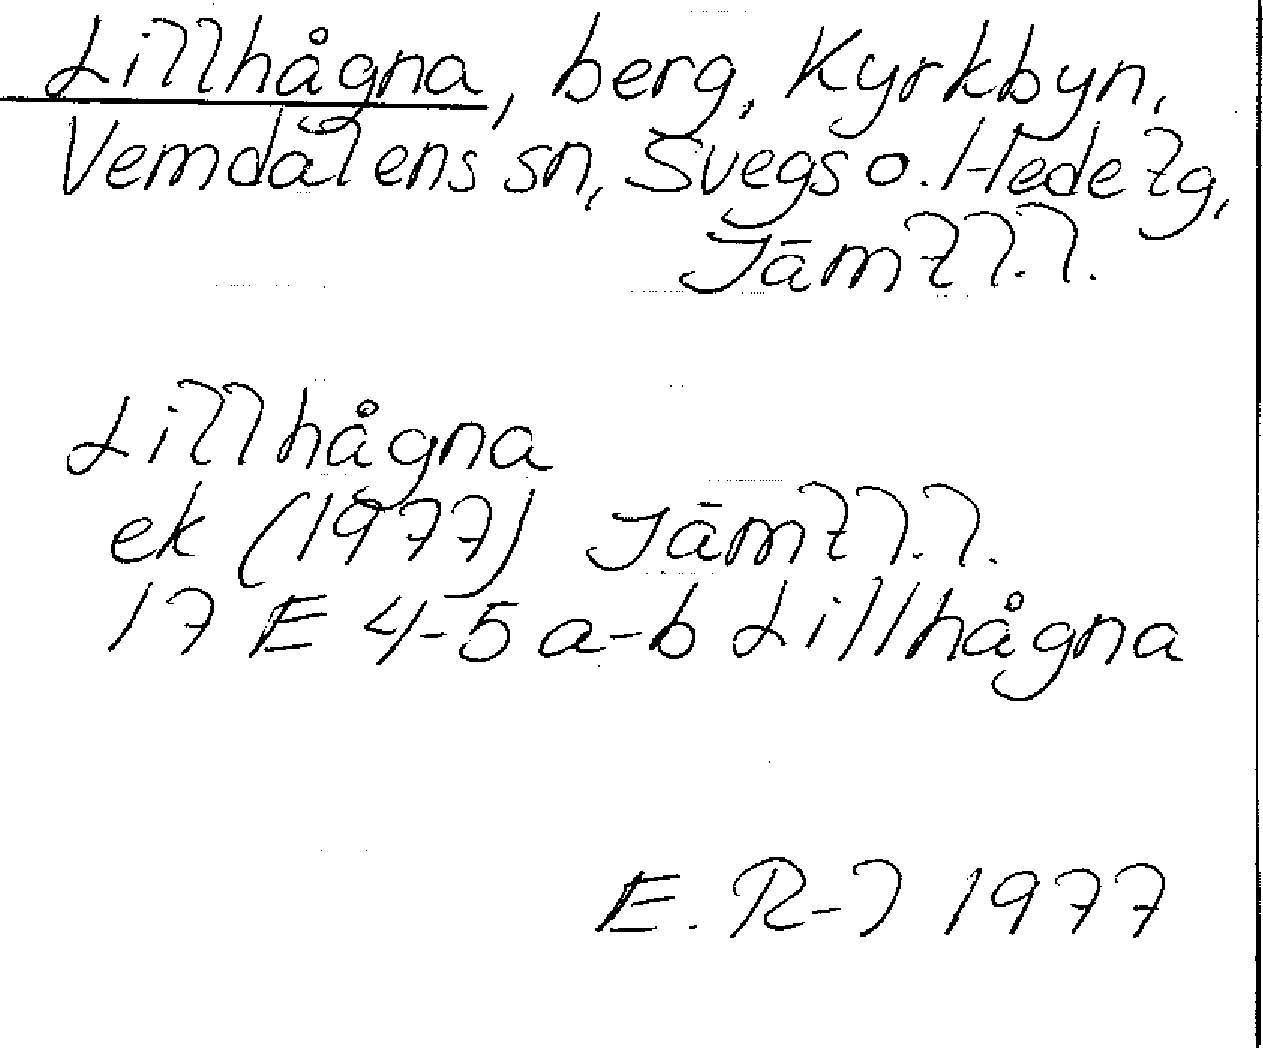 Lillhågna, berg, Kyrkbyn,
Vemdalens sn, Svegs o. Hede tg,
Jämtl. l.
Lillhågna
ek (1977) Jämtl. l.
17 E 4-5 a-b Lillhågna
E. R-l 1977